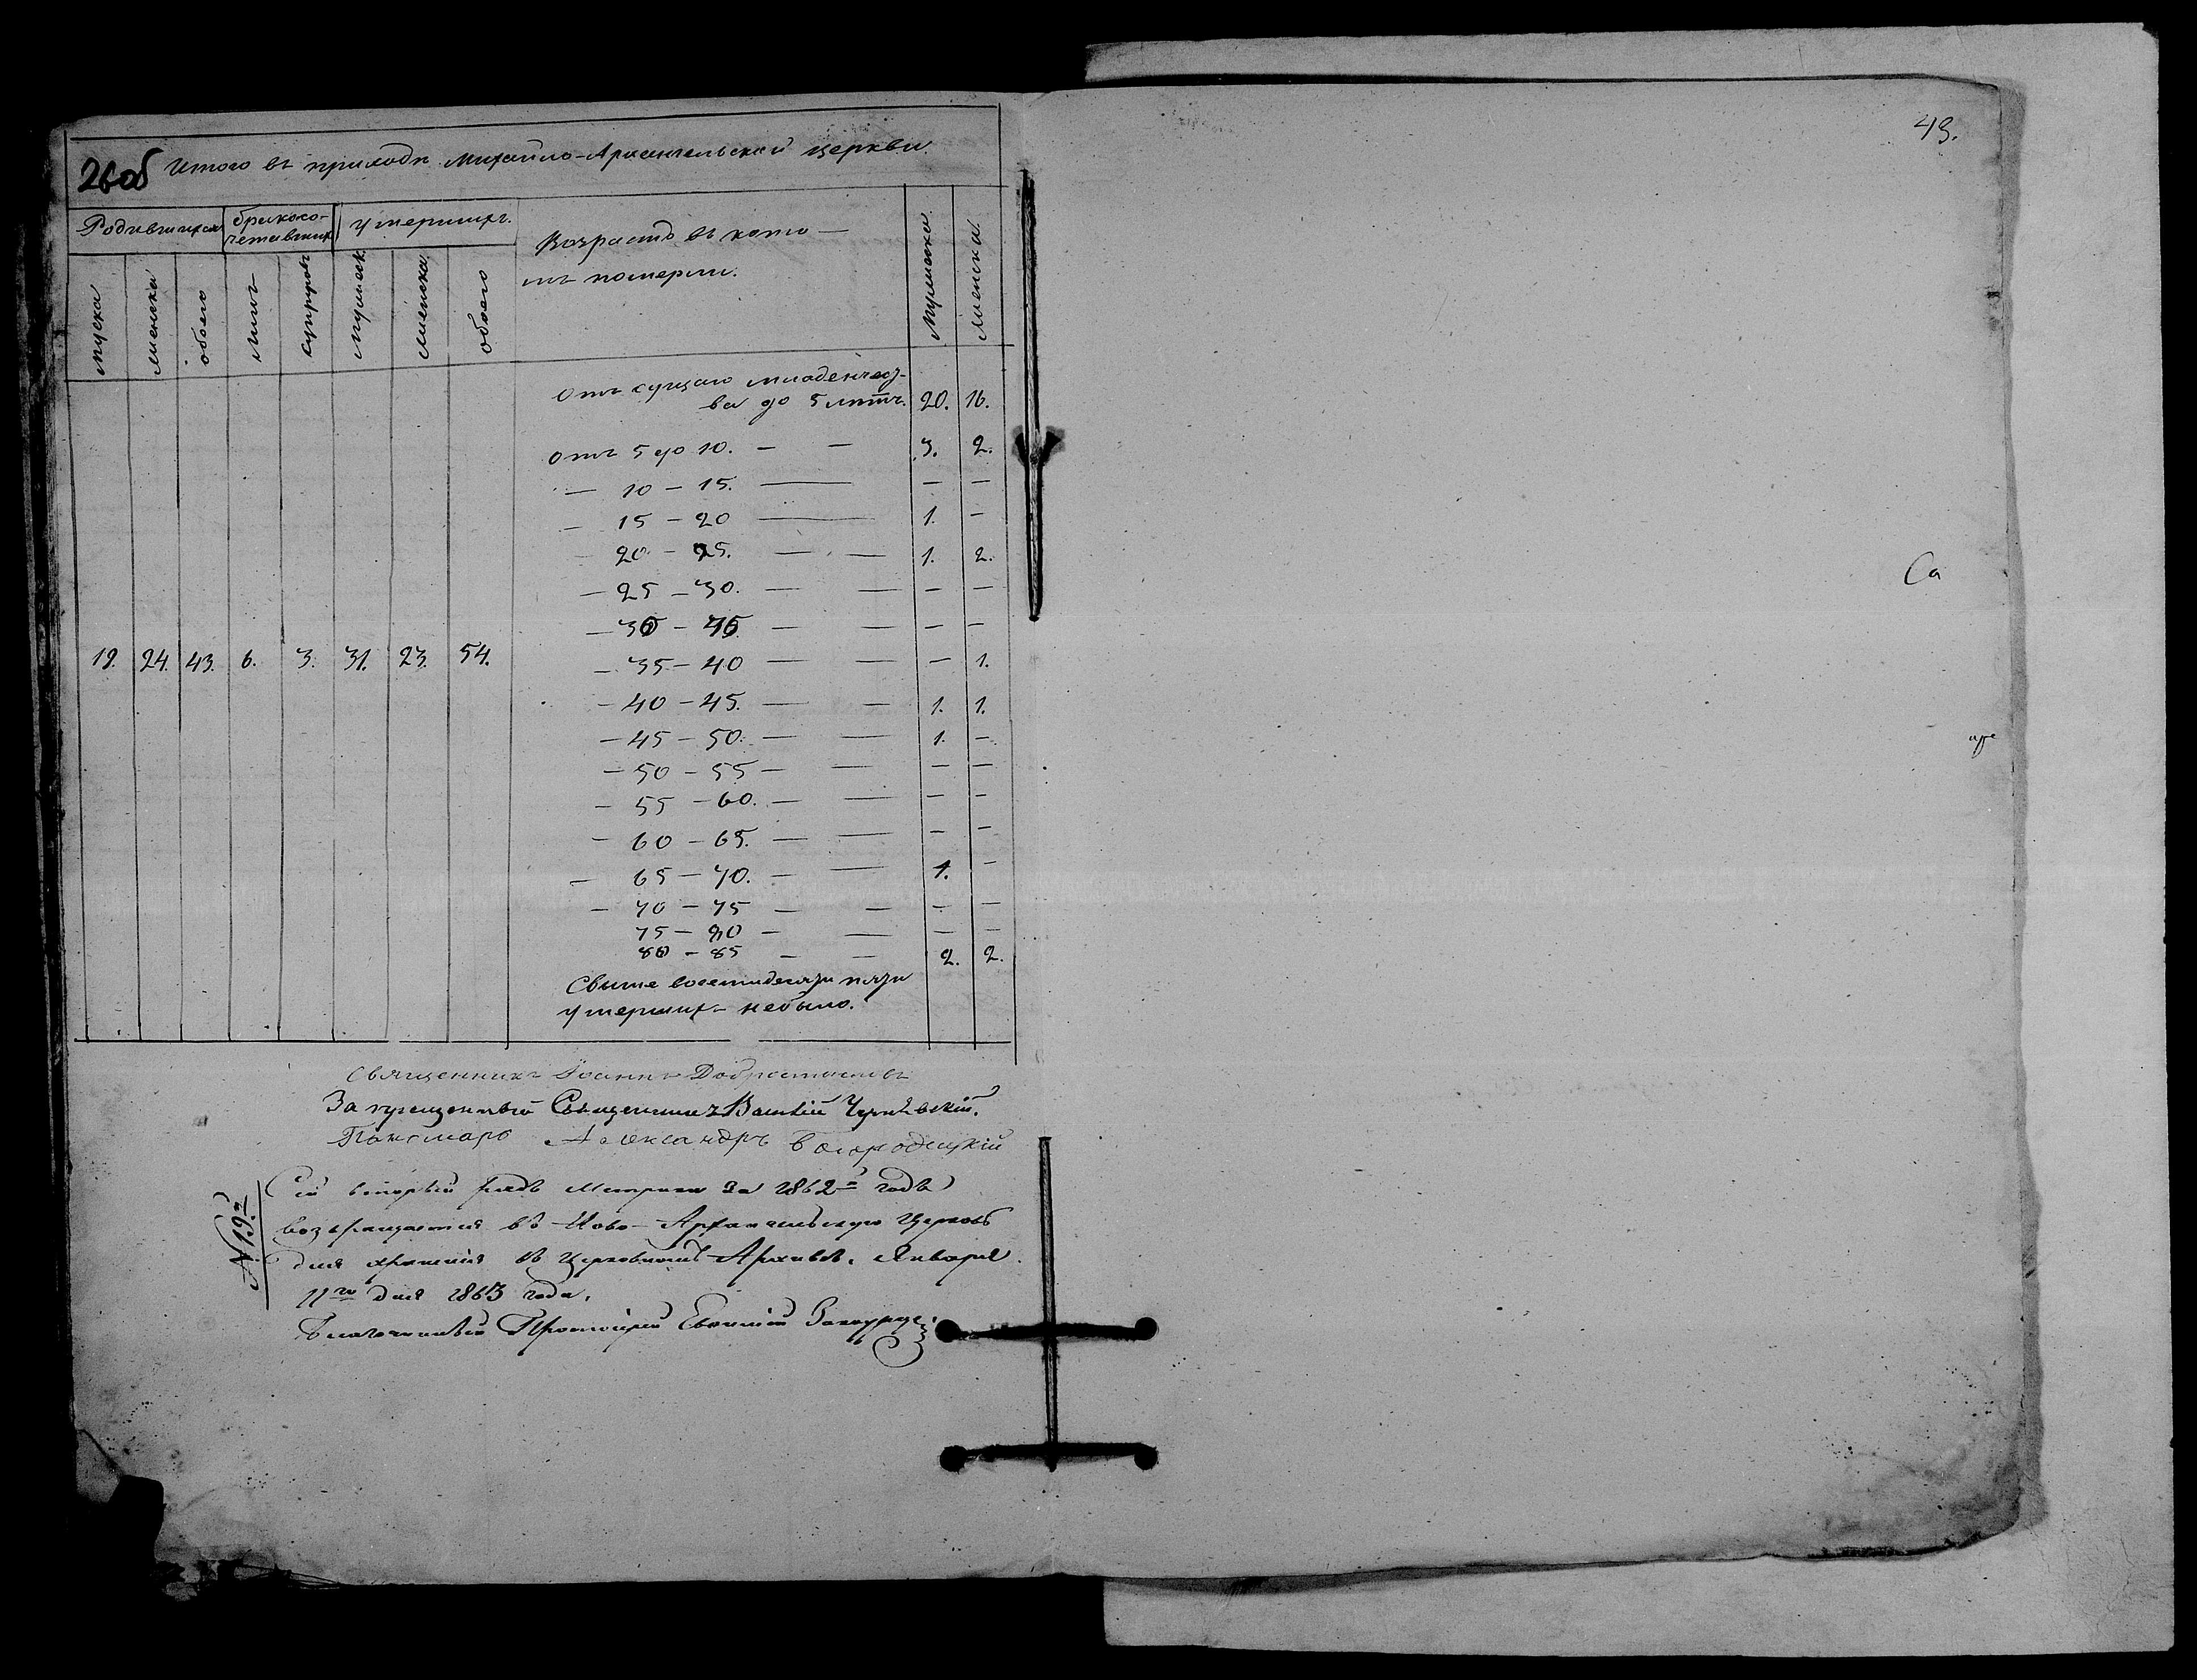 26об Итого въ приходѣ Михайло-Архангельской церкви.
Родившихся
бракосо-
четавшихъ
умершихъ.
Возрастъ въ кото-
мъ померли.
Мужеска
Женска.
муска
женска
обоего
лицъ
супруговъ
Мужеск
Женска
обоего
Отъ сущаго младенчест-
ва до 5 лѣтъ. 20. 16.
Отъ 5 до 10. — — 3. 2.
— 10 — 15. — — —
— 15 — 20 — 1. —
— 20 — 25. — — 1. 2.
— 25 — 30. — — — —
— 30 — 35. — — — —
19. 24. 43. 6. 3. 31. 23. 54. — 35 — 40 — — — 1.
— 40 — 45. — — 1. 1.
— 45 — 50. — — 1. —
— 50 — 55 — — — —
— 55 — 60. — — — —
— 60 — 65. — — — —
— 65 — 70. — — 1. —
— 70 — 75 — — — —
75 — 80 — — — —
80 — 85 — — 2. 2.
Свыше восемидесяти пяти
умершихъ небыло.
Священникъ Іоаннъ
Запрещенный Священникъ
Пономарь Александръ Богородицкій
Сій вторый Метрики за 1862й годъ
возвращается въ Ново-Архангельскую Церковь
для храненія въ Церковномъ Архивѣ. Января
11го дня 1863 года.
Благочинный Протоіерей Евфимій
N 19й
43.
Са